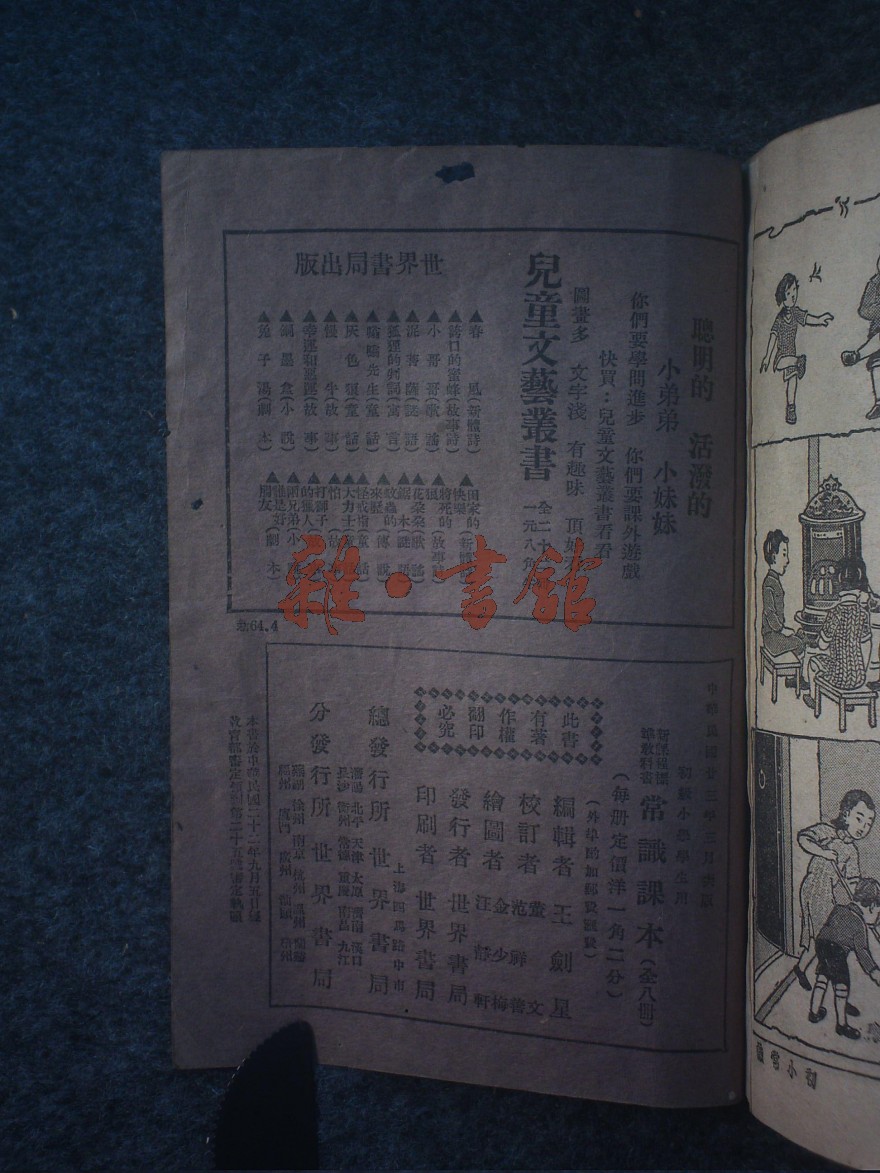 聰明的 活潑的
小弟弟 小妹妹
你們要學問進步 你們要課外遊戲
快買：兒童文藝叢書看看
圖畫多 文字淺 有趣味 頂好
兒童文藝叢書
全二十
一元八角
世界書局出版
▲春風(新體詩)
▲誇口的蜜蜂(故事詩)
▲小哥哥(歌謠)
▲泥菩薩(謎語)
▲狐狸的師詞(寓言)
▲瞌睡先生(童話)
▲灰色眼(童話)
▲慢牛(故事)
▲幸運和惡運(故事)
▲銅墨盒(小說)
▲兔子湯(劇本)
▲田家的快樂(新體詩
▲將死的狐(故事詩
▲花朵朵(歌謠
▲鋸木(謎語
▲蚊蟲的來歷(傳說
▲怪戒指(童話
▲大力士(童話
▲怕打獅子的獵人(故事
▲兩兄弟(小說
▲誰是好朋友(劇本)
總64.4
雜·書館
中華民國廿三年三月
初級小學學生用
新課程標準教科書 常識課本(全八冊)
(每册定價洋一角二分)
(外埠酌加郵費匯費)
編輯者 王劍星
校訂者 董文 范祥善
繪圖者 金少梅 汪靜軒
發行者 世界書局
印刷者 世界書局
此書有著作權翻印必究
上海四馬路中市
總發行所 世界書局
分發行所 世界書局
本書於中華民國二十二年九月五日經